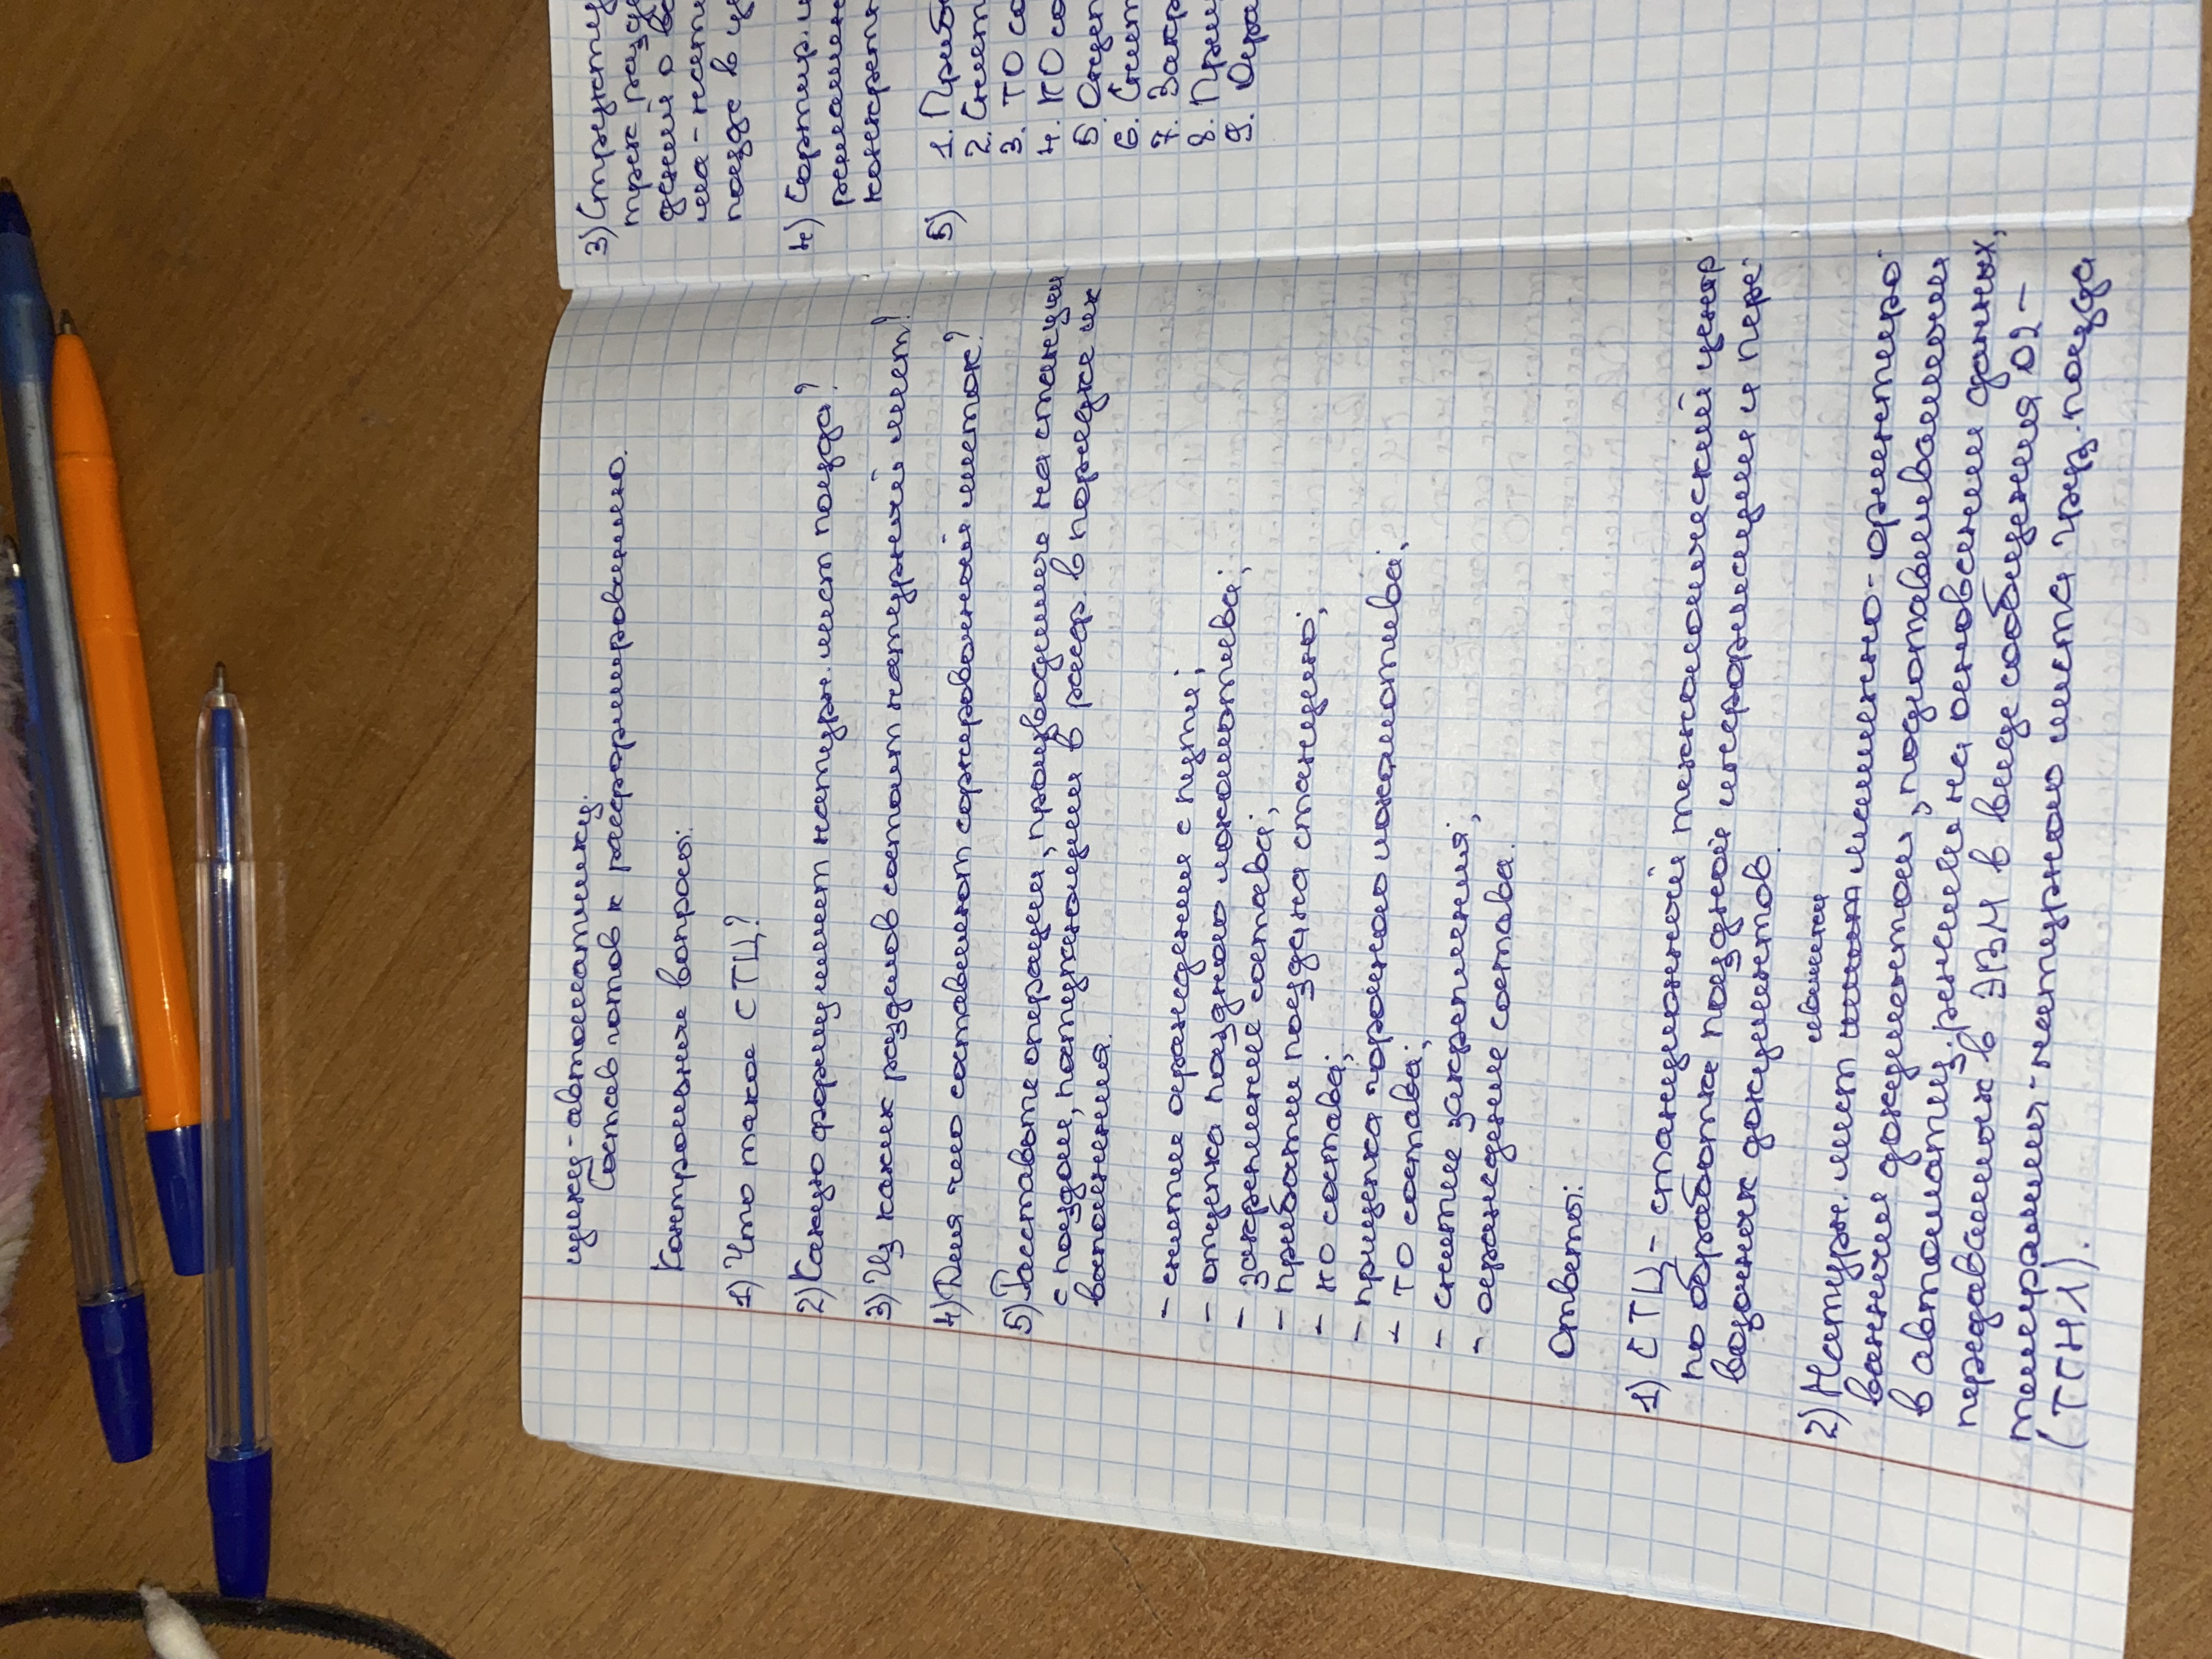 щику-автоматику.
Состав готов к расформированию.
Контрольные вопросы:
1) Что такое СТЦ?
2) Какую форму имеет натурн. лист поезда?
3) Из каких разделов состоит натурный лист?
4) Для чего составляют сортировочный листок?
5) Расставьте операции, производимые на станции
с поездом, поступающим в расф. в порядке их
выполнения.
- снятие ограждения с пути;
- отцепка поездного локомотива;
- закрепление состава;
- прибытие поезда на станцию;
- КО состава;
- прицепка горочного локомотива;
- ТО состава;
- снятие закрепления;
- ограждение состава.
Ответы:
1) СТЦ - станционный технологический центр
по обработке поездной информации и пере-
возочных документов.
2) Натурн. лист машинно-ориентиро-
ванные документом, подготавливаемым
в автоматиз. режиме на основании данных,
передаваемых в ЭВМ в виде сообщения 02 -
телеграмма-натурного листа груз. поезда
(ТГНЛ).
3) Структу
трех разде
дений о ва
ма-несті
поезде в це
4) Сортир. л
режимен
конкретн
5)
1. Приб
2. Снят
3. ТО со
4. КО со
5. Отцеп
6. Снят
7. Закр
8. Приц
9. Огра